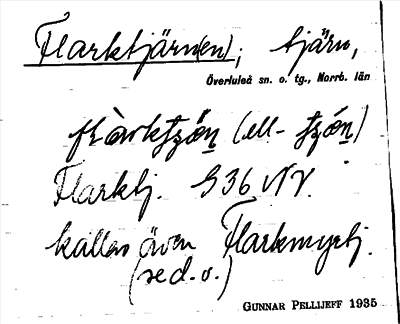 Flarktjärn(en); tjärn,
Överluleå sn. o. tg., Norrb. län
(ell-
Flarktj. S 36 NV.
kallas även Flarkmyrtj.
(se d. o.)
GUNNAR PELLIJEFF 1935